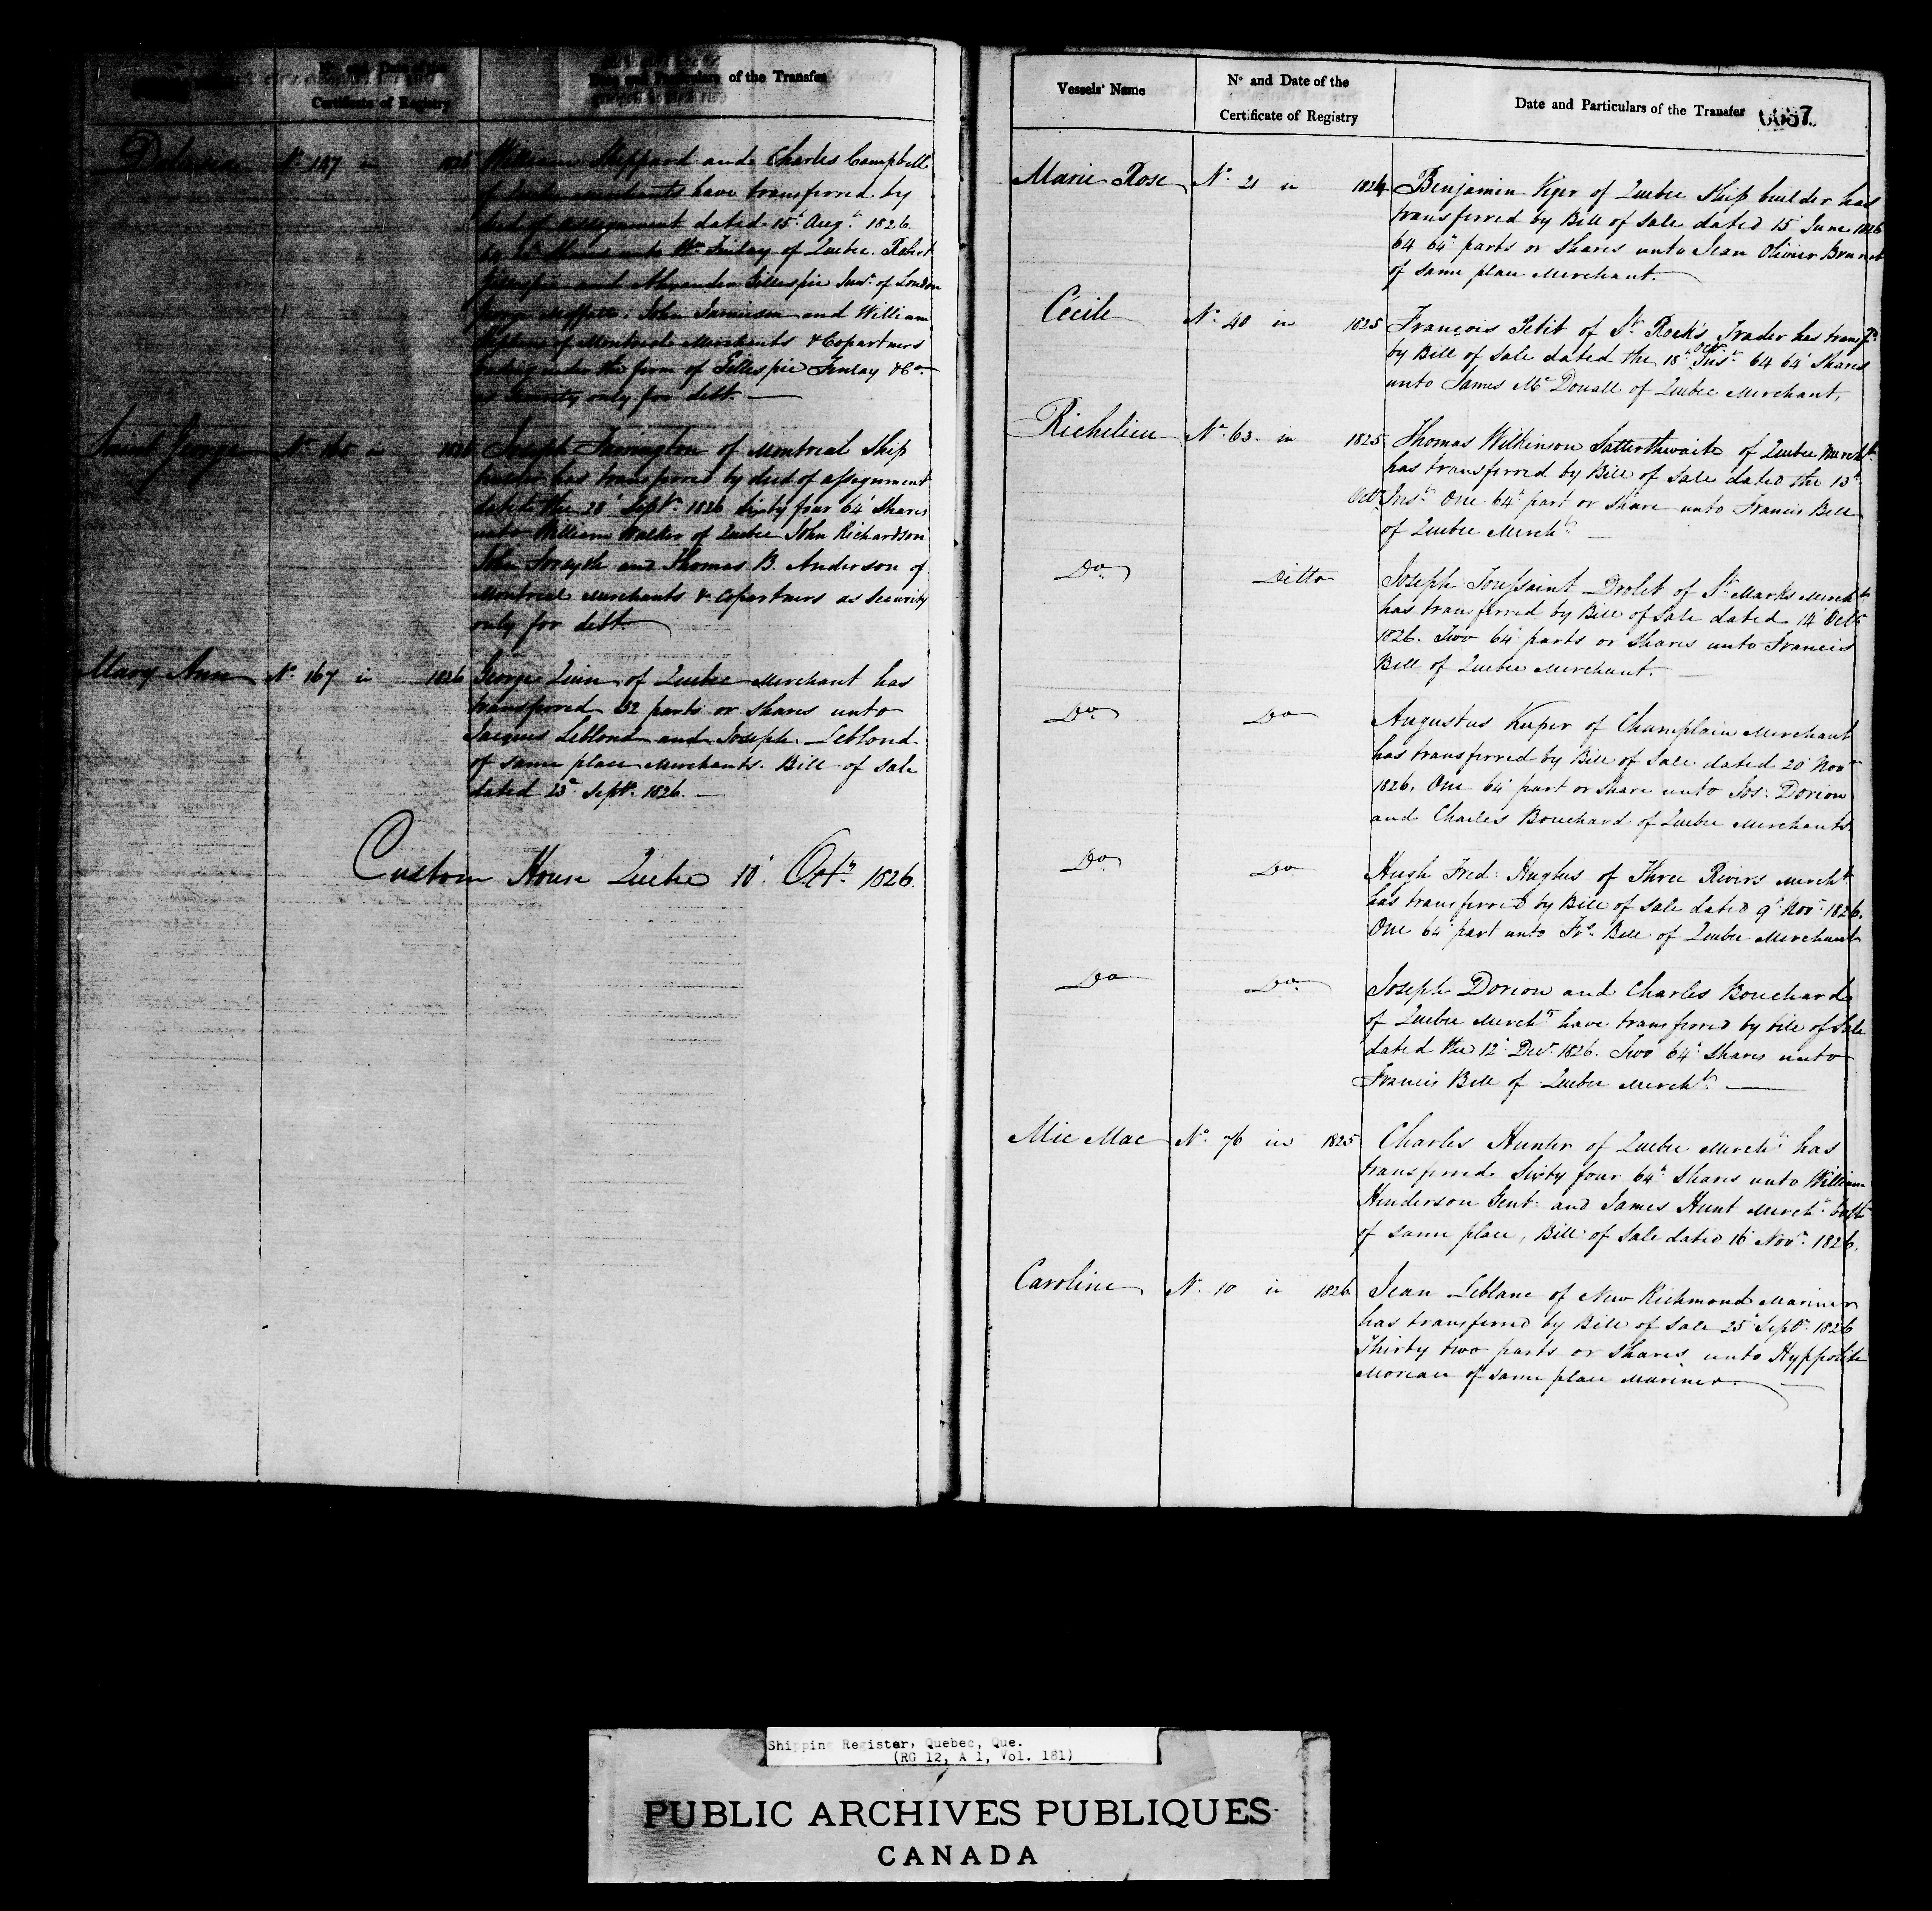 Certificate of Registry
Date and Particulars of the Transfer
Nº 147 in 1826 William Sheppard and Charles Campbell
of Quebec merchants have transferred by
deed of assignment dated 15th Augt. 1826.
Shares unto Wm. Finlay of Quebec. Robert
Gillespie and Alexander Gillespie Junr. of London
George Moffatt. John Jamieson and William
of Montreal Merchants & Copartners
trading under the firm of Gillespie Finlay & Co.
as Security only for debt.
Saint George Nº 165 in 1826 Joseph Farrington of Montreal Ship
has transferred by deed of assignment
dated the 28' Septr. 1826 Sixty four 64' Shares
unto William Walker of Quebec John Richardson
John Forsyth and Thomas B. Anderson of
Montreal Merchants & Copartners as Security
only for debt.
Mary Ann Nº 167 in 1826 George Quinn of Quebec Merchant has
transferred 32 parts or shares unto
Jacques Leblond and Joseph Leblond
of same place Merchants. Bill of Sale
dated 25 Septr. 1826.
Custom House Quebec 10' Octr. 1826.
Vessels' Name
Nº and Date of the
Certificate of Registry
Date and Particulars of the Transfer
Marie Rose Nº 21 in 1824 Benjamin Viger of Quebec Ship builder has
transferred by Bill of Sale dated 15 June 1826
64 64th parts or shares unto Jean Olivier Brunet
of same place Merchant.
Cécile Nº 40 in 1825 François Petit of St. Rock's Trader has transf.d
by Bill of Sale dated the 18th Inst. Octr 64 64' Shares
unto James McDouall of Quebec Merchant.
Richelieu Nº 63 in 1825 Thomas Wilkinson Satterthwaite of Quebec Mercht.
has transferred by Bill of Sale dated the 13'
Octr Inst. One 64th part or share unto Francis Bell
of Quebec Mercht.
Do. Ditto Joseph Toussaint Drolet of St. Marks Mercht.
has transferred by Bill of Sale dated 14' Octr
1826. Two 64' parts or shares unto Francis
Bell of Quebec Merchant.
Do. Do Augustus Kuper of Champlain Merchant
has transferred by Bill of Sale dated 20' Novr
1826. One 64' part or share unto Jos: Dorion
and Charles Bouchard of Quebec Merchants
Do. Do Hugh Fred: Hughes of Three Rivers Mercht.
has transferred by Bill of Sale dated 9' Novr. 1826.
One 64' part unto Frs. Bell of Quebec Merchant
Do Do. Joseph Dorion and Charles Bouchard
of Quebec Merchts have transferred by bill of Sale
dated the 12' Decr. 1826. Two 64' shares unto
Francis Bell of Quebec Mercht.
Mic Mac Nº 76 in 1825 Charles Hunter of Quebec Mercht. has
transferred Sixty four 64th Shares unto William
Henderson Gent. and James Hunt Mercht. both
of same place, Bill of Sale dated 16' Novr. 1826.
Caroline Nº 10 in 1826 Jean Leblanc of New Richmond Mariner
has transferred by Bill of Sale 25' Septr. 1826
Thirty two parts or shares unto Hyppolite
Moreau of same place Mariner.
Shipping Register, Quebec, Que.
(RG 12, A 1, Vol. 181)
PUBLIC ARCHIVES PUBLIQUES
CANADA